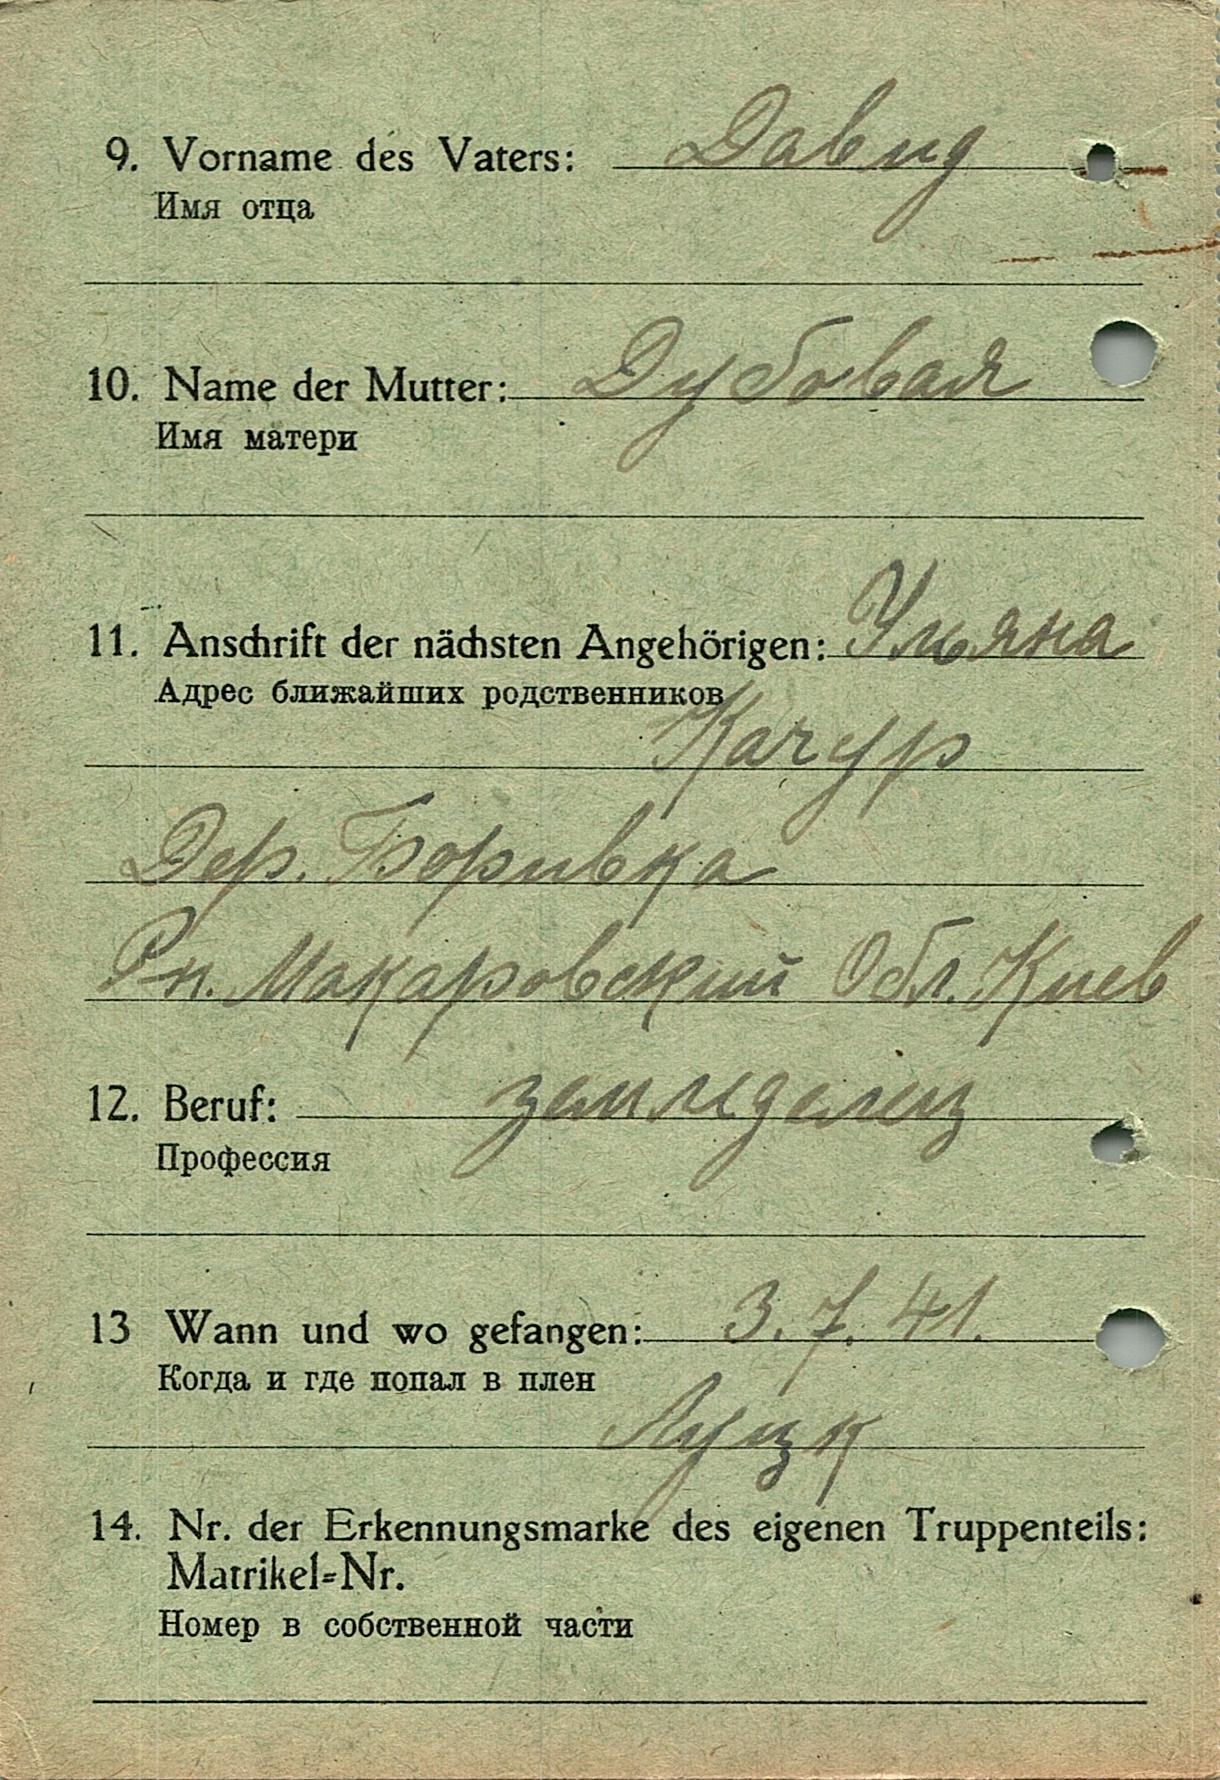 9. Vorname des Vaters: Давид
Имя отца
10. Name der Mutter: Дубовая
Имя матери
11. Anschrift der nächsten Angehörigen: Ульяна
Адрес ближайших родственников
Качур
Дер. Боривка
Рн. Макаровский Обл. Киев
12. Beruf:земледелец
Профессия
13 Wann und wo gefangen: 3.7.41.
Когда и где попал в плен
Луцк
14. Nr. der Erkennungsmarke des eigenen Truppenteils:
Matrikel=Nr.
Номер в собственной части